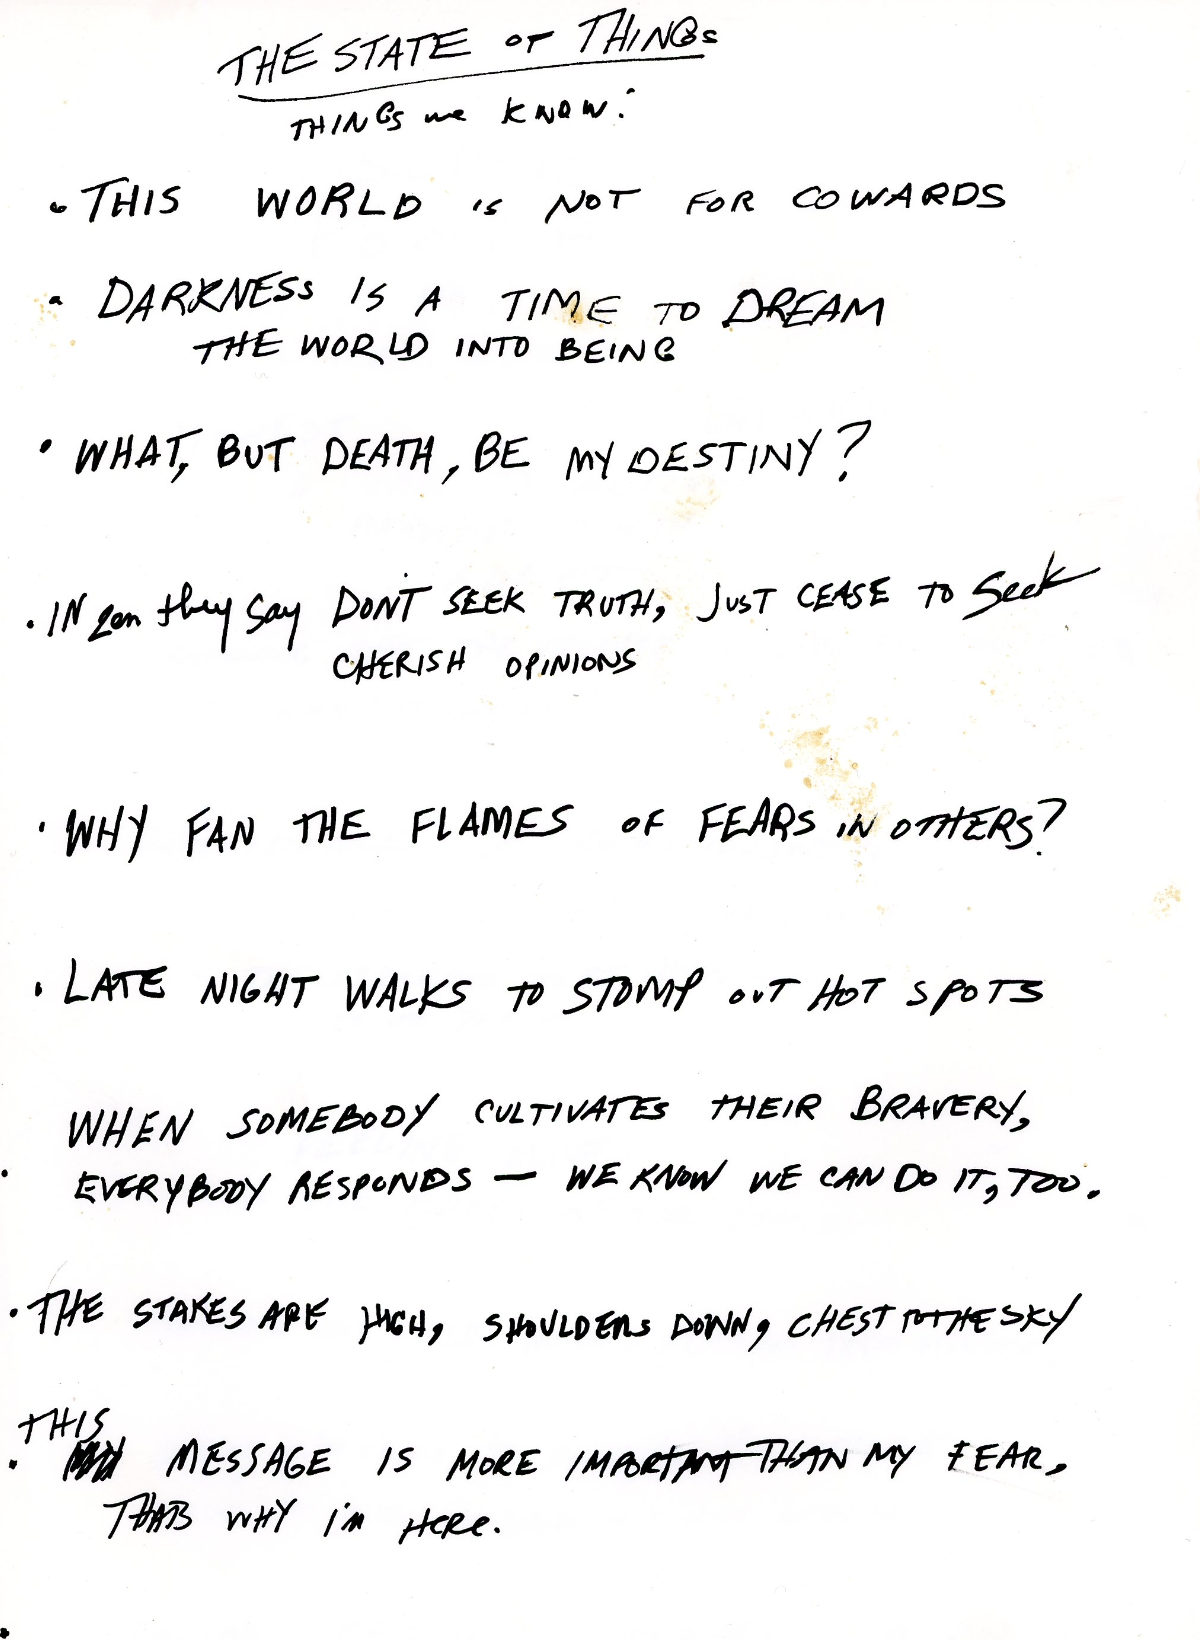 THE STATE OF THINGS
THINGS we KNOW:
• THIS WORLD is NOT FOR COWARDS
• DARKNESS IS A TIME TO DREAM
THE WORLD INTO BEING
• WHAT, BUT DEATH, BE MY DESTINY?
• IN zen they say DON'T SEEK TRUTH, JUST CEASE TO Seek
CHERISH OPINIONS
• WHY FAN THE FLAMES OF FEARS IN OTHERS?
• LATE NIGHT WALKS TO STOMP OUT HOT SPOTS
WHEN SOMEBODY CULTIVATES THEIR BRAVERY,
• EVERYBODY RESPONDS — WE KNOW WE CAN DO IT, TOO.
• THE STAKES ARE HIGH, SHOULDERS DOWN, CHEST TO THE SKY
THIS
• MESSAGE IS MORE IMPORTANT THAN MY FEAR,
THATS WHY I'm Here.
•